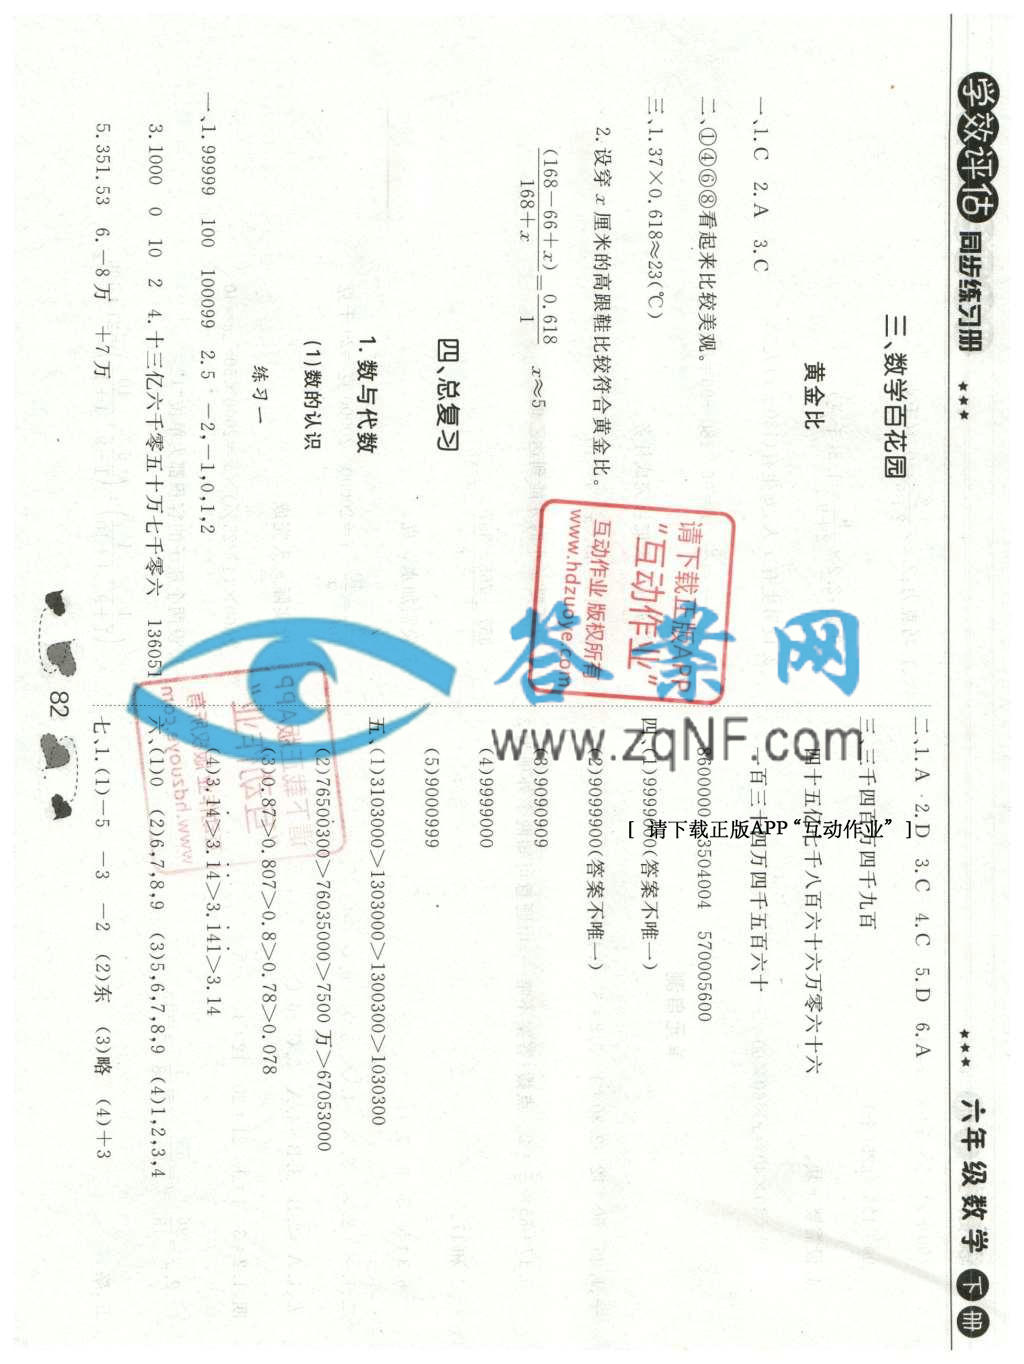 学效评估 同步练习册 ★★★
★★★ 六年级数学 下册
三、数学百花园
黄金比
一、1.C 2.A 3.C
二、①④⑥⑧看起来比较美观。
三、1.37×0.618≈23(℃)
2.设穿x厘米的高跟鞋比较符合黄金比。
(168-66+x)/(168+x)=0.618/1 x≈5
四、总复习
1.数与代数
(1)数的认识
练习一
一、1.99999 100 100099 2.5 -2,-1,0,1,2
3.1000 0 10 2 4.十三亿六千零五十万七千零六 136051
5.351.53 6.-8万 +7万
二、1.A 2.D 3.C 4.C 5.D 6.A
三、三千四百万四千九百
四十五亿七千八百六十六万零六十六
百三十四万四千五百六十
8600000 3504004 570005600
四、(1)9999000(答案不唯一)
(2)9099900(答案不唯一)
(3)9090909
(4)9999000
(5)9000999
五、(1)3103000>1303000>1300300>1030300
(2)76500300>76035000>7500万>67053000
(3)0.87>0.807>0.8>0.78>0.078
(4)3.1̇4̇>3.14̇>3.1̇41̇>3.14
六、(1)0 (2)6,7,8,9 (3)5,6,7,8,9 (4)1,2,3,4
七、1.(1)-5 -3 -2 (2)东 (3)略 (4)+3
82
请下载正版APP
“互动作业”
互动作业 版权所有
www.hdzuoye.com
答案网
www.zqNF.com
[ 请下载正版APP“互动作业” ]